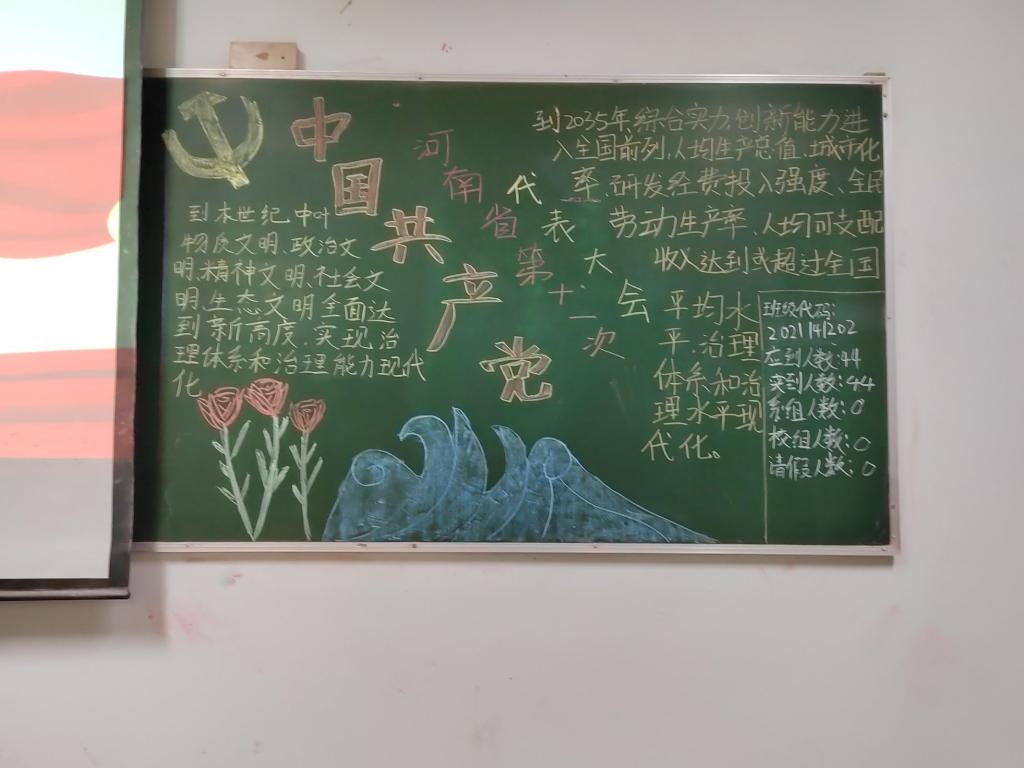 中国共产党
河南省第十一次
代表大会
到本世纪中叶
物质文明、政治文
明、精神文明、社会文
明、生态文明全面达
到新高度、实现治
理体系和治理能力现代
化
到2035年,综合实力,创新能力进
入全国前列,人均生产总值、城市化
率、研发经费投入强度、全民
劳动生产率、人均可支配
收入达到或超过全国
平均水
平、治理
体系和治
理水平现
代化。
班级代码:
2021141202
应到人数:44
实到人数:44
系组人数:0
校组人数:0
请假人数:0